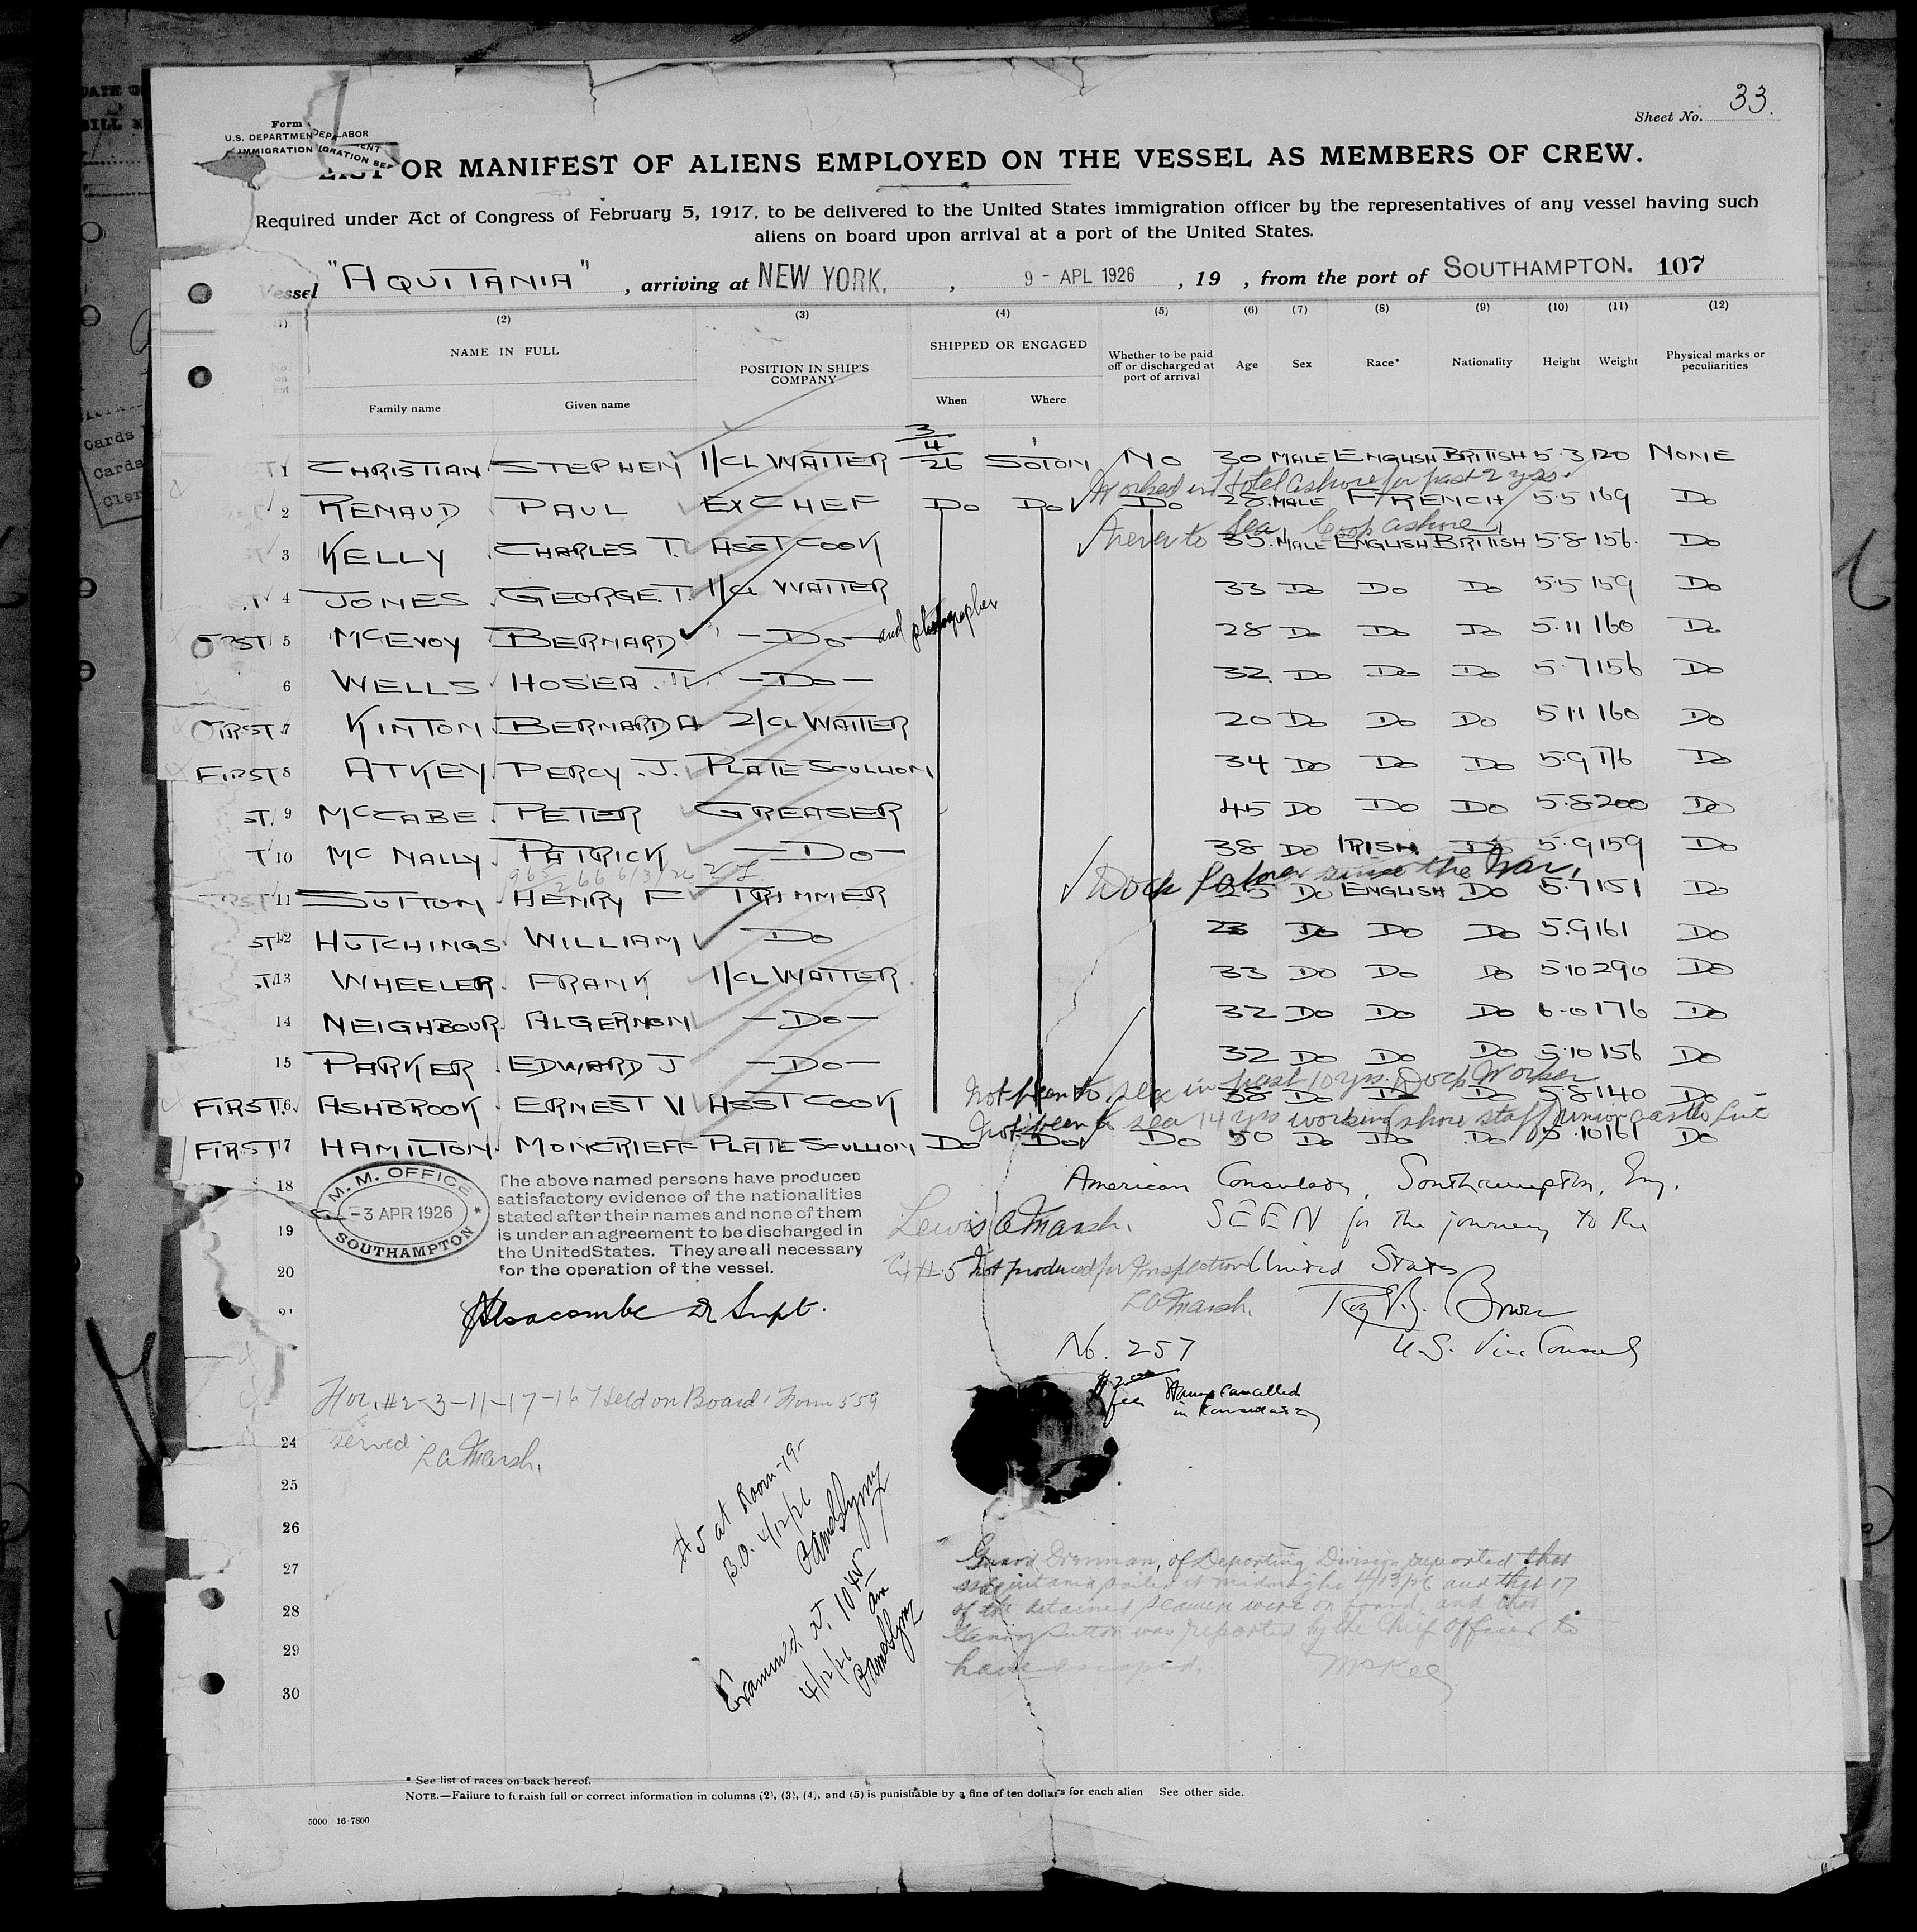 Sheet No. 33.
Form
U.S. DEPARTMEN LABOR
IMMIGRATION
LIST OR MANIFEST OF ALIENS EMPLOYED ON THE VESSEL AS MEMBERS OF CREW.
Required under Act of Congress of February 5, 1917, to be delivered to the United States immigration officer by the representatives of any vessel having such
aliens on board upon arrival at a port of the United States.
Vessel "AQUITANIA", arriving at NEW YORK. , 9 - APL 1926 , 19 , from the port of SOUTHAMPTON. 107
(1) (2) (3) (4) (5) (6) (7) (8) (9) (10) (11) (12)
NAME IN FULL POSITION IN SHIP'S COMPANY SHIPPED OR ENGAGED Whether to be paid off or discharged at port of arrival Age Sex Race* Nationality Height Weight Physical marks or peculiarities
Family name Given name When Where
1 CHRISTIAN STEPHEN 1/CL WAITER 3/4/26 SOTON NO 30 MALE ENGLISH BRITISH 5.3 120 NONE
Worked in Hotel ashore for past 2 yrs.
2 RENAUD PAUL EX CHEF DO DO DO 28. MALE FRENCH 5.5 169 DO
never to sea, Cook ashore
3 KELLY CHARLES T. ASST COOK 35. MALE ENGLISH BRITISH 5.8 156. DO
4 JONES. GEORGE. T. 1/CL WAITER 33 DO DO DO 5.5 159 DO
5 MCEVOY BERNARD -DO- and photographer 28 DO DO DO 5.11 160 DO
6 WELLS HOSEA. -DO- 32. DO DO DO 5.7 156 DO
FIRST 7 KINTON. BERNARD A 2/CL WAITER 20 DO DO DO 5 11 160 DO
FIRST 8 ATKEY. PERCY. J. PLATE SCULLION 34 DO DO DO 5.9 176 DO
ST. 9 MCCABE. PETER GREASER 45 DO DO DO 5.8 200 DO
T 10 MC NALLY. PATRICK -DO- 38 DO IRISH DO 5.9 159 DO
Dock laborer since the War.
11 SUTTON HENRY F TRIMMER 25 DO ENGLISH DO 5.7 151 DO
ST 12 HUTCHINGS WILLIAM DO DO DO DO 5.9 161 DO
ST 13 WHEELER. FRANK 1/CL WAITER. 33 DO DO DO 5.10 290 DO
14 NEIGHBOUR. ALGERNON -DO- 32 DO DO DO 6.0 176 DO
15 PARKER. EDWARD J -DO- 32 DO DO DO 5.10 156 DO
Not been to sea in past 10 yrs. Dock Worker
FIRST. 16 ASHBROOK. ERNEST V ASST COOK 38 DO DO DO 5.8 140 DO
Not been to sea 14 yrs working shore staff Union Castle Line
FIRST 17 HAMILTON. MONCRIEFF PLATE SCULLION DO DO DO 50 DO DO DO 5.10 161 DO
18
19
20
M. M. OFFICE
-3 APR 1926
SOUTHAMPTON
The above named persons have produced
satisfactory evidence of the nationalities
stated after their names and none of them
is under an agreement to be discharged in
the United States. They are all necessary
for the operation of the vessel.
American Consulate, Southampton, Eng.
Lewis A Marsh. SEEN for the journey to the
United States
#5 Not produced for Inspection
L A Marsh.
Roy Brown
U.S. Vice Consul
No. 257
fee Stamp Cancelled
#2-3-11-17-16 Held on Board. Form 559
served.
L A Marsh.
24
25
26
27
28
29
30
#5 at Room-19-
B.O. 4/12/26
Examined at 10 45 am
4/12/26
Guard Drennan, of Deporting Division reported that
Aquitania sailed at midnight 4/13/26 and that 17
of the detained seamen were on board, and that
Henry Sutton was reported by the Chief Officer to
have escaped.
McKee
* See list of races on back hereof.
NOTE.—Failure to furnish full or correct information in columns (2), (3), (4), and (5) is punishable by a fine of ten dollars for each alien See other side.
5000 16-7800